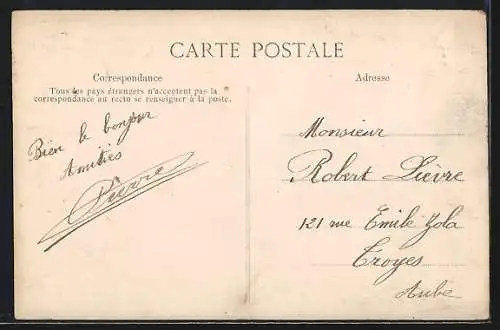 CARTE POSTALE
Correspondance
Tous les pays étrangers n'acceptent pas la
correspondance au recto se renseigner à la poste.
Bien le bonjour
Amitiés
Lièvre
Adresse
Monsieur
Robert Lièvre
121 rue Emile Zola
Troyes
Aube